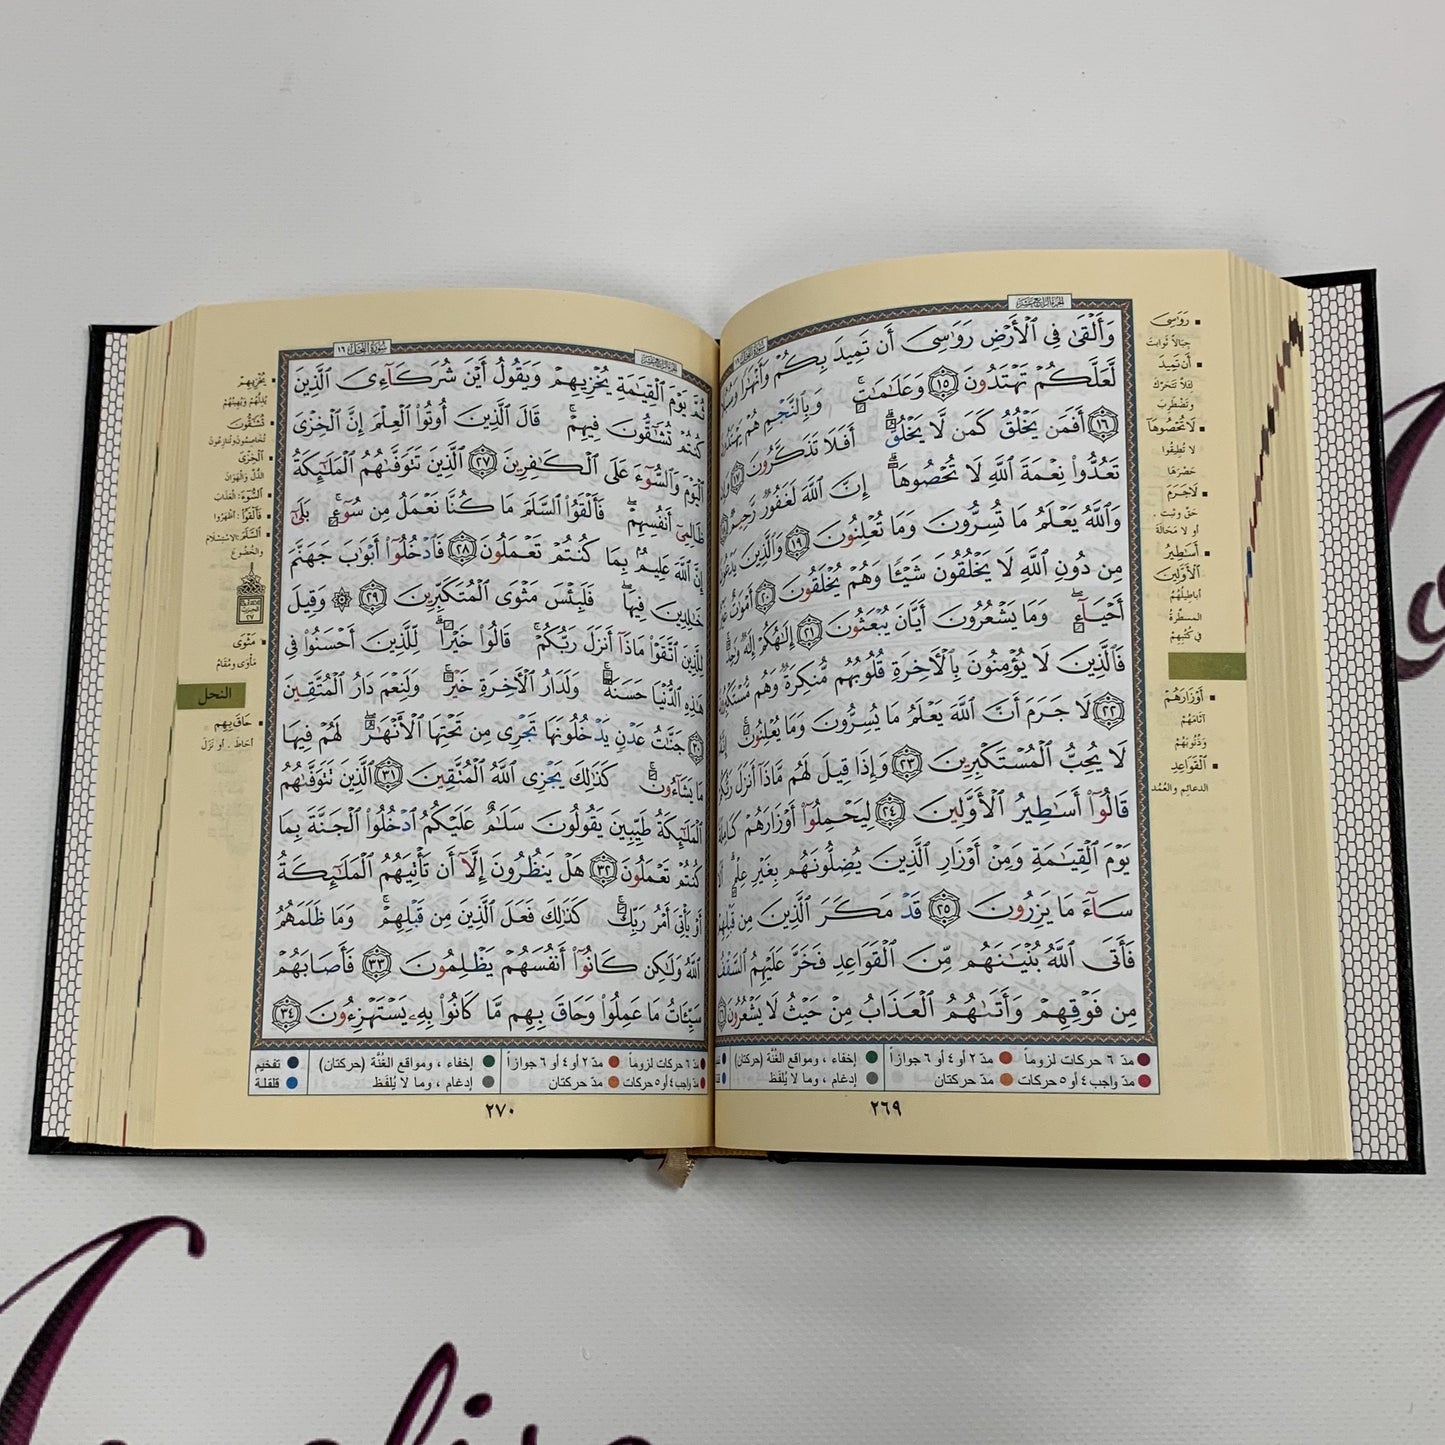 الجزء الرابع عشر
وَأَلْقَىٰ فِي الْأَرْضِ رَوَاسِيَ أَن تَمِيدَ بِكُمْ وَأَنْهَارًا وَسُبُلًا
لَّعَلَّكُمْ تَهْتَدُونَ ١٥ وَعَلَامَاتٍ ۚ وَبِالنَّجْمِ هُمْ يَهْتَدُونَ
١٦ أَفَمَن يَخْلُقُ كَمَن لَّا يَخْلُقُ ۗ أَفَلَا تَذَكَّرُونَ ١٧ وَإِن
تَعُدُّوا نِعْمَةَ اللَّهِ لَا تُحْصُوهَا ۗ إِنَّ اللَّهَ لَغَفُورٌ رَّحِيمٌ ١٨
وَاللَّهُ يَعْلَمُ مَا تُسِرُّونَ وَمَا تُعْلِنُونَ ١٩ وَالَّذِينَ يَدْعُونَ
مِن دُونِ اللَّهِ لَا يَخْلُقُونَ شَيْئًا وَهُمْ يُخْلَقُونَ ٢٠ أَمْوَاتٌ غَيْرُ
أَحْيَاءٍ ۖ وَمَا يَشْعُرُونَ أَيَّانَ يُبْعَثُونَ ٢١ إِلَٰهُكُمْ إِلَٰهٌ وَاحِدٌ ۚ
فَالَّذِينَ لَا يُؤْمِنُونَ بِالْآخِرَةِ قُلُوبُهُم مُّنكِرَةٌ وَهُم مُّسْتَكْبِرُونَ
٢٢ لَا جَرَمَ أَنَّ اللَّهَ يَعْلَمُ مَا يُسِرُّونَ وَمَا يُعْلِنُونَ ۚ إِنَّهُ
لَا يُحِبُّ الْمُسْتَكْبِرِينَ ٢٣ وَإِذَا قِيلَ لَهُم مَّاذَا أَنزَلَ رَبُّكُمْ
قَالُوا أَسَاطِيرُ الْأَوَّلِينَ ٢٤ لِيَحْمِلُوا أَوْزَارَهُمْ كَامِلَةً
يَوْمَ الْقِيَامَةِ وَمِنْ أَوْزَارِ الَّذِينَ يُضِلُّونَهُم بِغَيْرِ عِلْمٍ ۗ أَلَا
سَاءَ مَا يَزِرُونَ ٢٥ قَدْ مَكَرَ الَّذِينَ مِن قَبْلِهِمْ
فَأَتَى اللَّهُ بُنْيَانَهُم مِّنَ الْقَوَاعِدِ فَخَرَّ عَلَيْهِمُ السَّقْفُ
مِن فَوْقِهِمْ وَأَتَاهُمُ الْعَذَابُ مِنْ حَيْثُ لَا يَشْعُرُونَ ٢٦
رَوَاسِيَ
جبالاً ثوابت
أَن تَمِيدَ
لئلا تتحرك
وتضطرب
لَا تُحْصُوهَا
لا تطيقوا
حصرها
لَا جَرَمَ
حق وثبت .
أو لا محالة
أَسَاطِيرُ
الْأَوَّلِينَ
أباطيلهم
المسطرة
في كتبهم
أَوْزَارَهُمْ
آثامهم
وذنوبهم
الْقَوَاعِدِ
الدعائم والعمد
مدّ ٦ حركات لزوماً مدّ ٢ أو ٤ أو ٦ جوازاً إخفاء ، ومواقع الغُنّة (حركتان)
مدّ واجب ٤ أو ٥ حركات مدّ حركتان إدغام ، وما لا يُلفَظ
٢٦٩
الجزء الرابع عشر سورة النحل ١٦
ثُمَّ يَوْمَ الْقِيَامَةِ يُخْزِيهِمْ وَيَقُولُ أَيْنَ شُرَكَاءِيَ الَّذِينَ
كُنتُمْ تُشَاقُّونَ فِيهِمْ ۚ قَالَ الَّذِينَ أُوتُوا الْعِلْمَ إِنَّ الْخِزْيَ
الْيَوْمَ وَالسُّوءَ عَلَى الْكَافِرِينَ ٢٧ الَّذِينَ تَتَوَفَّاهُمُ الْمَلَائِكَةُ
ظَالِمِي أَنفُسِهِمْ ۖ فَأَلْقَوُا السَّلَمَ مَا كُنَّا نَعْمَلُ مِن سُوءٍ ۚ بَلَىٰ
إِنَّ اللَّهَ عَلِيمٌ بِمَا كُنتُمْ تَعْمَلُونَ ٢٨ فَادْخُلُوا أَبْوَابَ جَهَنَّمَ
خَالِدِينَ فِيهَا ۖ فَلَبِئْسَ مَثْوَى الْمُتَكَبِّرِينَ ٢٩ ۞ وَقِيلَ
لِلَّذِينَ اتَّقَوْا مَاذَا أَنزَلَ رَبُّكُمْ ۚ قَالُوا خَيْرًا ۗ لِّلَّذِينَ أَحْسَنُوا فِي
هَٰذِهِ الدُّنْيَا حَسَنَةٌ ۚ وَلَدَارُ الْآخِرَةِ خَيْرٌ ۚ وَلَنِعْمَ دَارُ الْمُتَّقِينَ
٣٠ جَنَّاتُ عَدْنٍ يَدْخُلُونَهَا تَجْرِي مِن تَحْتِهَا الْأَنْهَارُ ۖ لَهُمْ فِيهَا
مَا يَشَاءُونَ ۚ كَذَٰلِكَ يَجْزِي اللَّهُ الْمُتَّقِينَ ٣١ الَّذِينَ تَتَوَفَّاهُمُ
الْمَلَائِكَةُ طَيِّبِينَ يَقُولُونَ سَلَامٌ عَلَيْكُمُ ادْخُلُوا الْجَنَّةَ بِمَا
كُنتُمْ تَعْمَلُونَ ٣٢ هَلْ يَنظُرُونَ إِلَّا أَن تَأْتِيَهُمُ الْمَلَائِكَةُ
أَوْ يَأْتِيَ أَمْرُ رَبِّكَ ۚ كَذَٰلِكَ فَعَلَ الَّذِينَ مِن قَبْلِهِمْ ۚ وَمَا ظَلَمَهُمُ
اللَّهُ وَلَٰكِن كَانُوا أَنفُسَهُمْ يَظْلِمُونَ ٣٣ فَأَصَابَهُمْ
سَيِّئَاتُ مَا عَمِلُوا وَحَاقَ بِهِم مَّا كَانُوا بِهِ يَسْتَهْزِءُونَ ٣٤
يُخْزِيهِمْ
يذلهم ويهينهم
تُشَاقُّونَ
تخاصمون وتنازعون
الْخِزْيَ
الذل والهوان
السُّوءَ: العذاب
فَأَلْقَوُا: أظهروا
السَّلَمَ: الاستسلام
والخضوع
مَثْوَى
مأوى ومقام
النحل
حَاقَ بِهِم
أحاط . أو نزل
مدّ ٦ حركات لزوماً مدّ ٢ أو ٤ أو ٦ جوازاً إخفاء ، ومواقع الغُنّة (حركتان) تفخيم
مدّ واجب ٤ أو ٥ حركات مدّ حركتان إدغام ، وما لا يُلفَظ قلقلة
٢٧٠